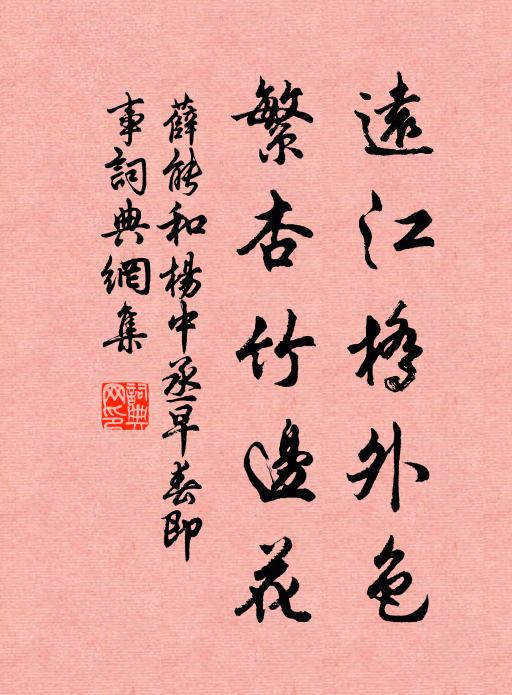 遠江橋外色
繁杏竹邊花
薛能和楊中丞早春即
事詞典網集
詞典
网印